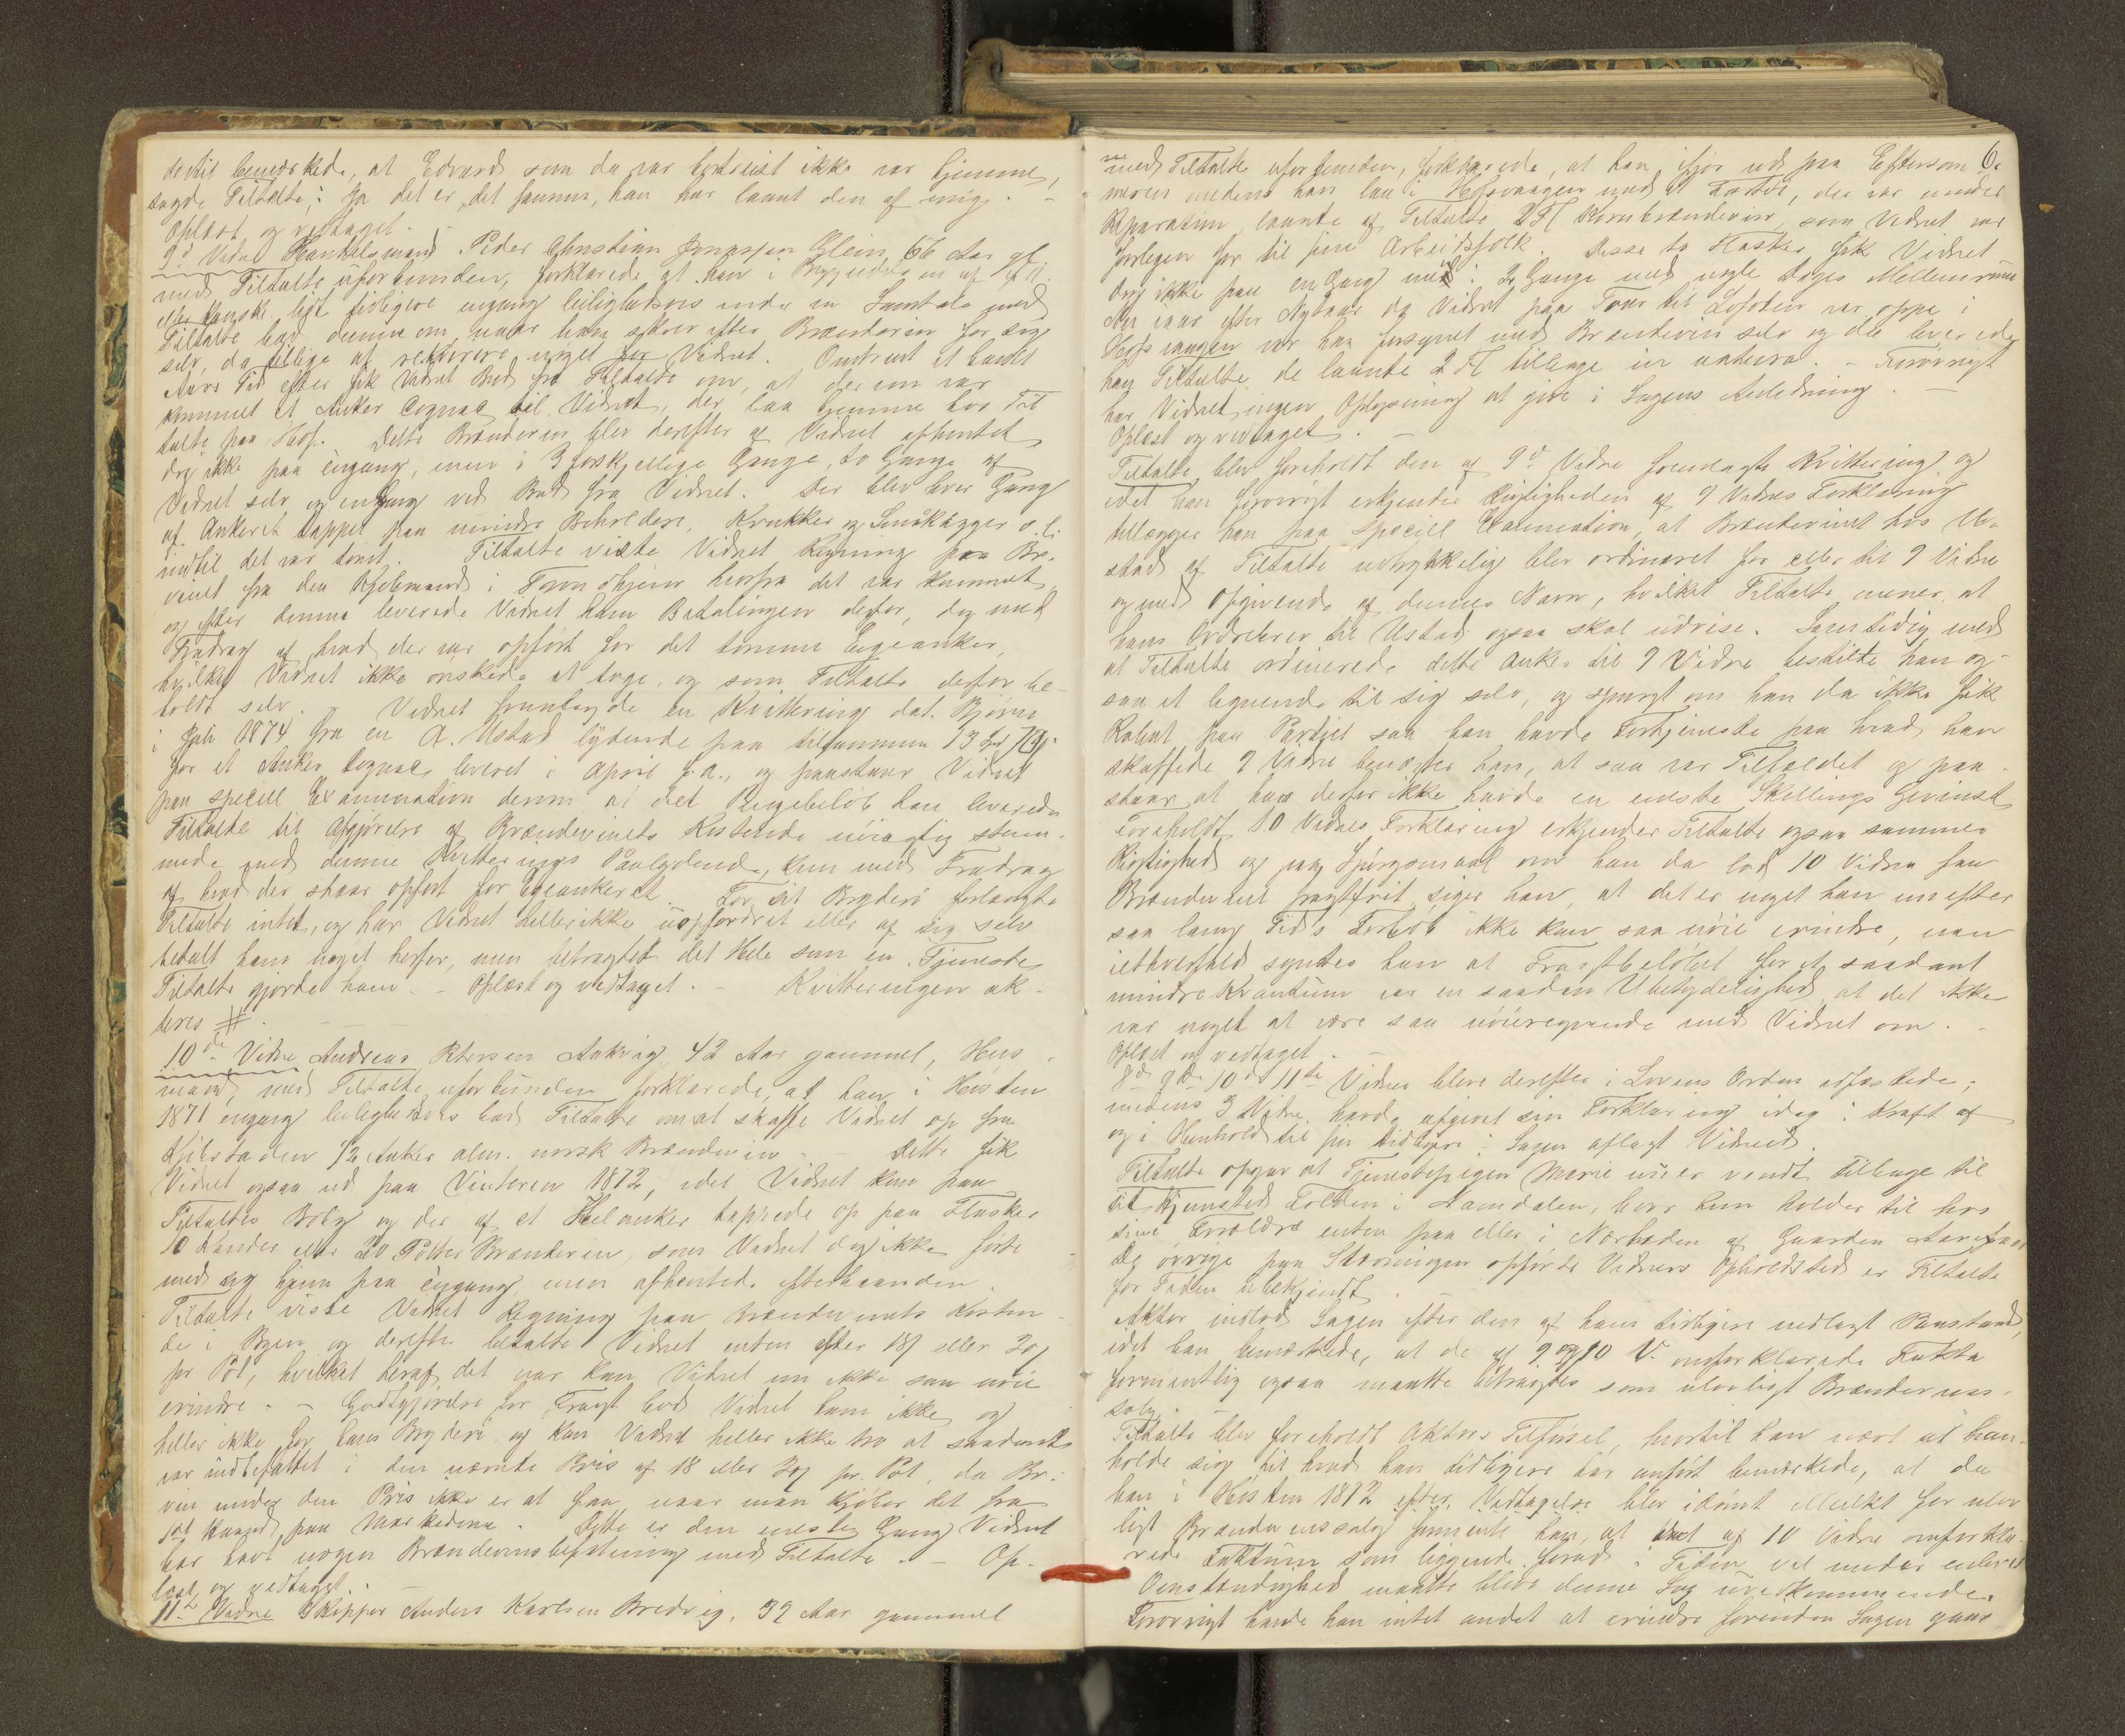 dertil bemærkede, at Edvard som da var bortreist ikke var hjemme,
sagde Tiltalte: Ja det er det samme, han har laant den af mig. -
Oplæst og vedtaget.
9d Vidne Handelsmand Peder Christian Jonassen Glein, 66 Aar gl.
med Tiltalte uforbunden, forklarede at han i Begyndelsen af
eller kanske lidt tidligere engang leilighedsvis under en Samtale med
Tiltalte bad denne om, naar han skrev efter Brændevin for sig
selv, da tillige at rekvirere noget for Vidnet. Omtrent et halvt
Aars Tid efter fik Vidnet Bud fra Tiltalte om, at der nu var
kommet et Anker Cognac til Vidnet, der laa hjemme hos Til
talte paa Hof. Dette Brændevin blev derefter af Vidnet afhentet
dog ikke paa engang, men i 3 forskjellige Gange, to Gange af
Vidnet selv og engang ved Bud fra Vidnet. Der blev hver Gang
af Ankeret tappet paa mindre Beholdere, Krukker og Smaakagger o. l.
indtil det var tomt. Tiltalte viste Vidnet Regning paa Br.
vinet fra den Kjøbmand i Trondhjem hvorfra det var kommet
og efter denne leverede Vidnet ham Betalingen derfor, dog med
Fradrag af hvad der var opført for det tomme Egeanker,
hvilket Vidnet ikke ønskede at tage og som Tiltalte derfor be-
holdt selv. - Vidnet fremlagde en Kvittering dat. Bjørn
i Juli 1874 fra en A. Ustad lydende paa tilsammen 13 Spd
for et Anker Cognac leveret i April s. a., og paastaar Vidnet
paa speciel Examination derom at det Pengebeløb han leverede
Tiltalte til Afgjørelse af Brændevinets Kostende nøiagtig stem-
mede med denne Kvitterings Paalydende, kun med Fradrag
af hvad der staar opført for Egeankeret. For sit Bryderi forlangte
Tiltalte intet, og har Vidnet heller ikke uopfordret eller af sig selv
betalt ham noget herfor, men betragtet det Hele som en Tjeneste
Tiltalte gjorde ham. - Oplæst og vedtaget. - Kvitteringen ak-
teres #.
10de Vidne Andreas Petersen Aakvig 42 Aar gammel, Hus-
mand, med Tiltalte uforbunden forklarede, at han i Høsten
1871 engang leilighedsvis bad Tiltalte om at skaffe Vidnet op fra
Kjøbstaden 1/2 Anker alm. norsk Brændevin. - Dette fik
Vidnet ogsaa ud paa Vinteren 1872, idet Vidnet kom paa
Tiltaltes Bolig og der af et Helanker tappede op paa Flasker
10 Kander eller 20 Potter Brændevin, som Vidnet dog ikke førte
med sig hjem paa engang men afhentede efterhaanden.
Tiltalte viste Vidnet Regning paa Brændevinets Kosten-
de i Byen og derefter betalte Vidnet enten efter 18 eller 20
pr Pot, hvilket heraf det var kan Vidnet nu ikke saa nøie
erindre. - Godtgjørelse for Fragt bød Vidnet ham ikke og
heller ikke for hans Bryderi og kan Vidnet heller ikke tro at saadant
var indbefattet i den nævnte Pris af 18 eller 20 pr. Pot, da Br:
vin under den Pris ikke er at faa, naar man kjøber det fra
1st Haand, paa Markederne. Dette er den eneste Gang Vidnet
har havt nogen Brændevinsbefatning med Tiltalte. - Op-
læst og vedtaget.
11te Vidne Skipper Anders Karlsen Bredvig, 39 Aar gammel
6.
med Tiltalte uforbunden, forklarede, at han ifjor ud paa Eftersom-
meren medens han laa i Hofsvaagen med sit Fartøi, der var under
Reparation laante af Tiltalte 2 Fl Kornbrændevin, som Vidnet var
forlegen for til sine Arbeidsfolk. Disse to Flasker fik Vidnet
dog ikke paa en Gang men i 2 Gange med nogle Dages Mellemrum
Nu iaar efter Nytaar da Vidnet paa Tour til Lofoten var oppe i
Hofsvaagen var han forsynet med Brændevin selv og da leverede
han Tiltalte de laante 2 Fl tilbage in natura. - Forøvrigt
har Vidnet ingen Oplysning at give i Sagens Anledning. -
Oplæst og vedtaget. -
Tiltalte blev foreholdt den af 9d Vidne fremlagte Kvittering og
idet han forøvrigt erkjender Rigtigheden af 9 Vidnes Forklaring
tillægger han paa speciel Examination, at Brændevinet hos U-
stad af Tiltalte udtrykkelig blev ordineret for eller til 9 Vidne
og med Opgivende af dennes Navn, hvilket Tiltalte mener, at
hans Ordrebrev til Ustad ogsaa skal udvise. Samtidig med
at Tiltalte ordinerede dette Anker til 9 Vidne bestilte han og-
saa et lignende til sig selv, og spurgt om han da ikke fik
Rabat paa Partiet saa han havde Fortjeneste paa hvad han
skaffede 9 Vidne benægter han, at saa var Tilfældet og paa-
staar at han derfor ikke havde en eneste Skillings Gevinst
Foreholdt 10 Vidnes Forklaring erkjender Tiltalte ogsaa sammes
Rigtighed og paa Spørgsmaal om han da lod 10 Vidne faa
Brændevinet fragtfrit siger han, at det er noget han nu efter
saa lang Tids Forløb ikke kan saa nøie erindre, men
ialtfald syntes han at Fragtbeløbet for et saadant
mindre Kvantum var en saadan Ubetydelighed, at det ikke
var noget at være saa nøieregnende med Vidnet om. -
Oplæst og vedtaget. -
8de 9de 10de 11te Vidner bleve derefter i Lovens Orden edfæstede;
medens 3 Vidne havde afgivet sin Forklaring idag i Kraft af
og i Henhold til sin tidligere i Sagen aflagt Vidneed.
Tiltalte opgav at Tjenestepigen Marie nu er vendt tilbage til
sit Hjemsted Folden i Namdalen, hvor hun holder til hos
sine Forældre enten paa eller i Nærheden af Gaarden
De øvrige paa Stævningen opførte Vidners Opholdsted er Tiltalte
for Tiden ubekjendt. -
Aktor indlod Sagen efter den af ham tidligere nedlagt Paastand,
idet han bemærkede, at de af 9 og 10 V. omforklarede Fakta
formentlig ogsaa maatte betragtes som ulovligt Brændevins-
salg.
Tiltalte blev foreholdt Aktors Tilførsel, hvortil han næst at hen-
holde sig til hvad han tidligere har anført bemærkede, at da
han i Høsten 1872 efter Vedtagelse blev idømt Mulkt for ulov
ligt Brændevinssalg formente han, at det af 10 Vidne omforkla-
rede Faktum som liggende forud i Tiden vel under enhver
Omstændighed maatte blive denne Sag uvedkommende.
Forøvrigt havde han intet andet at erindre forinden Sagen gaar